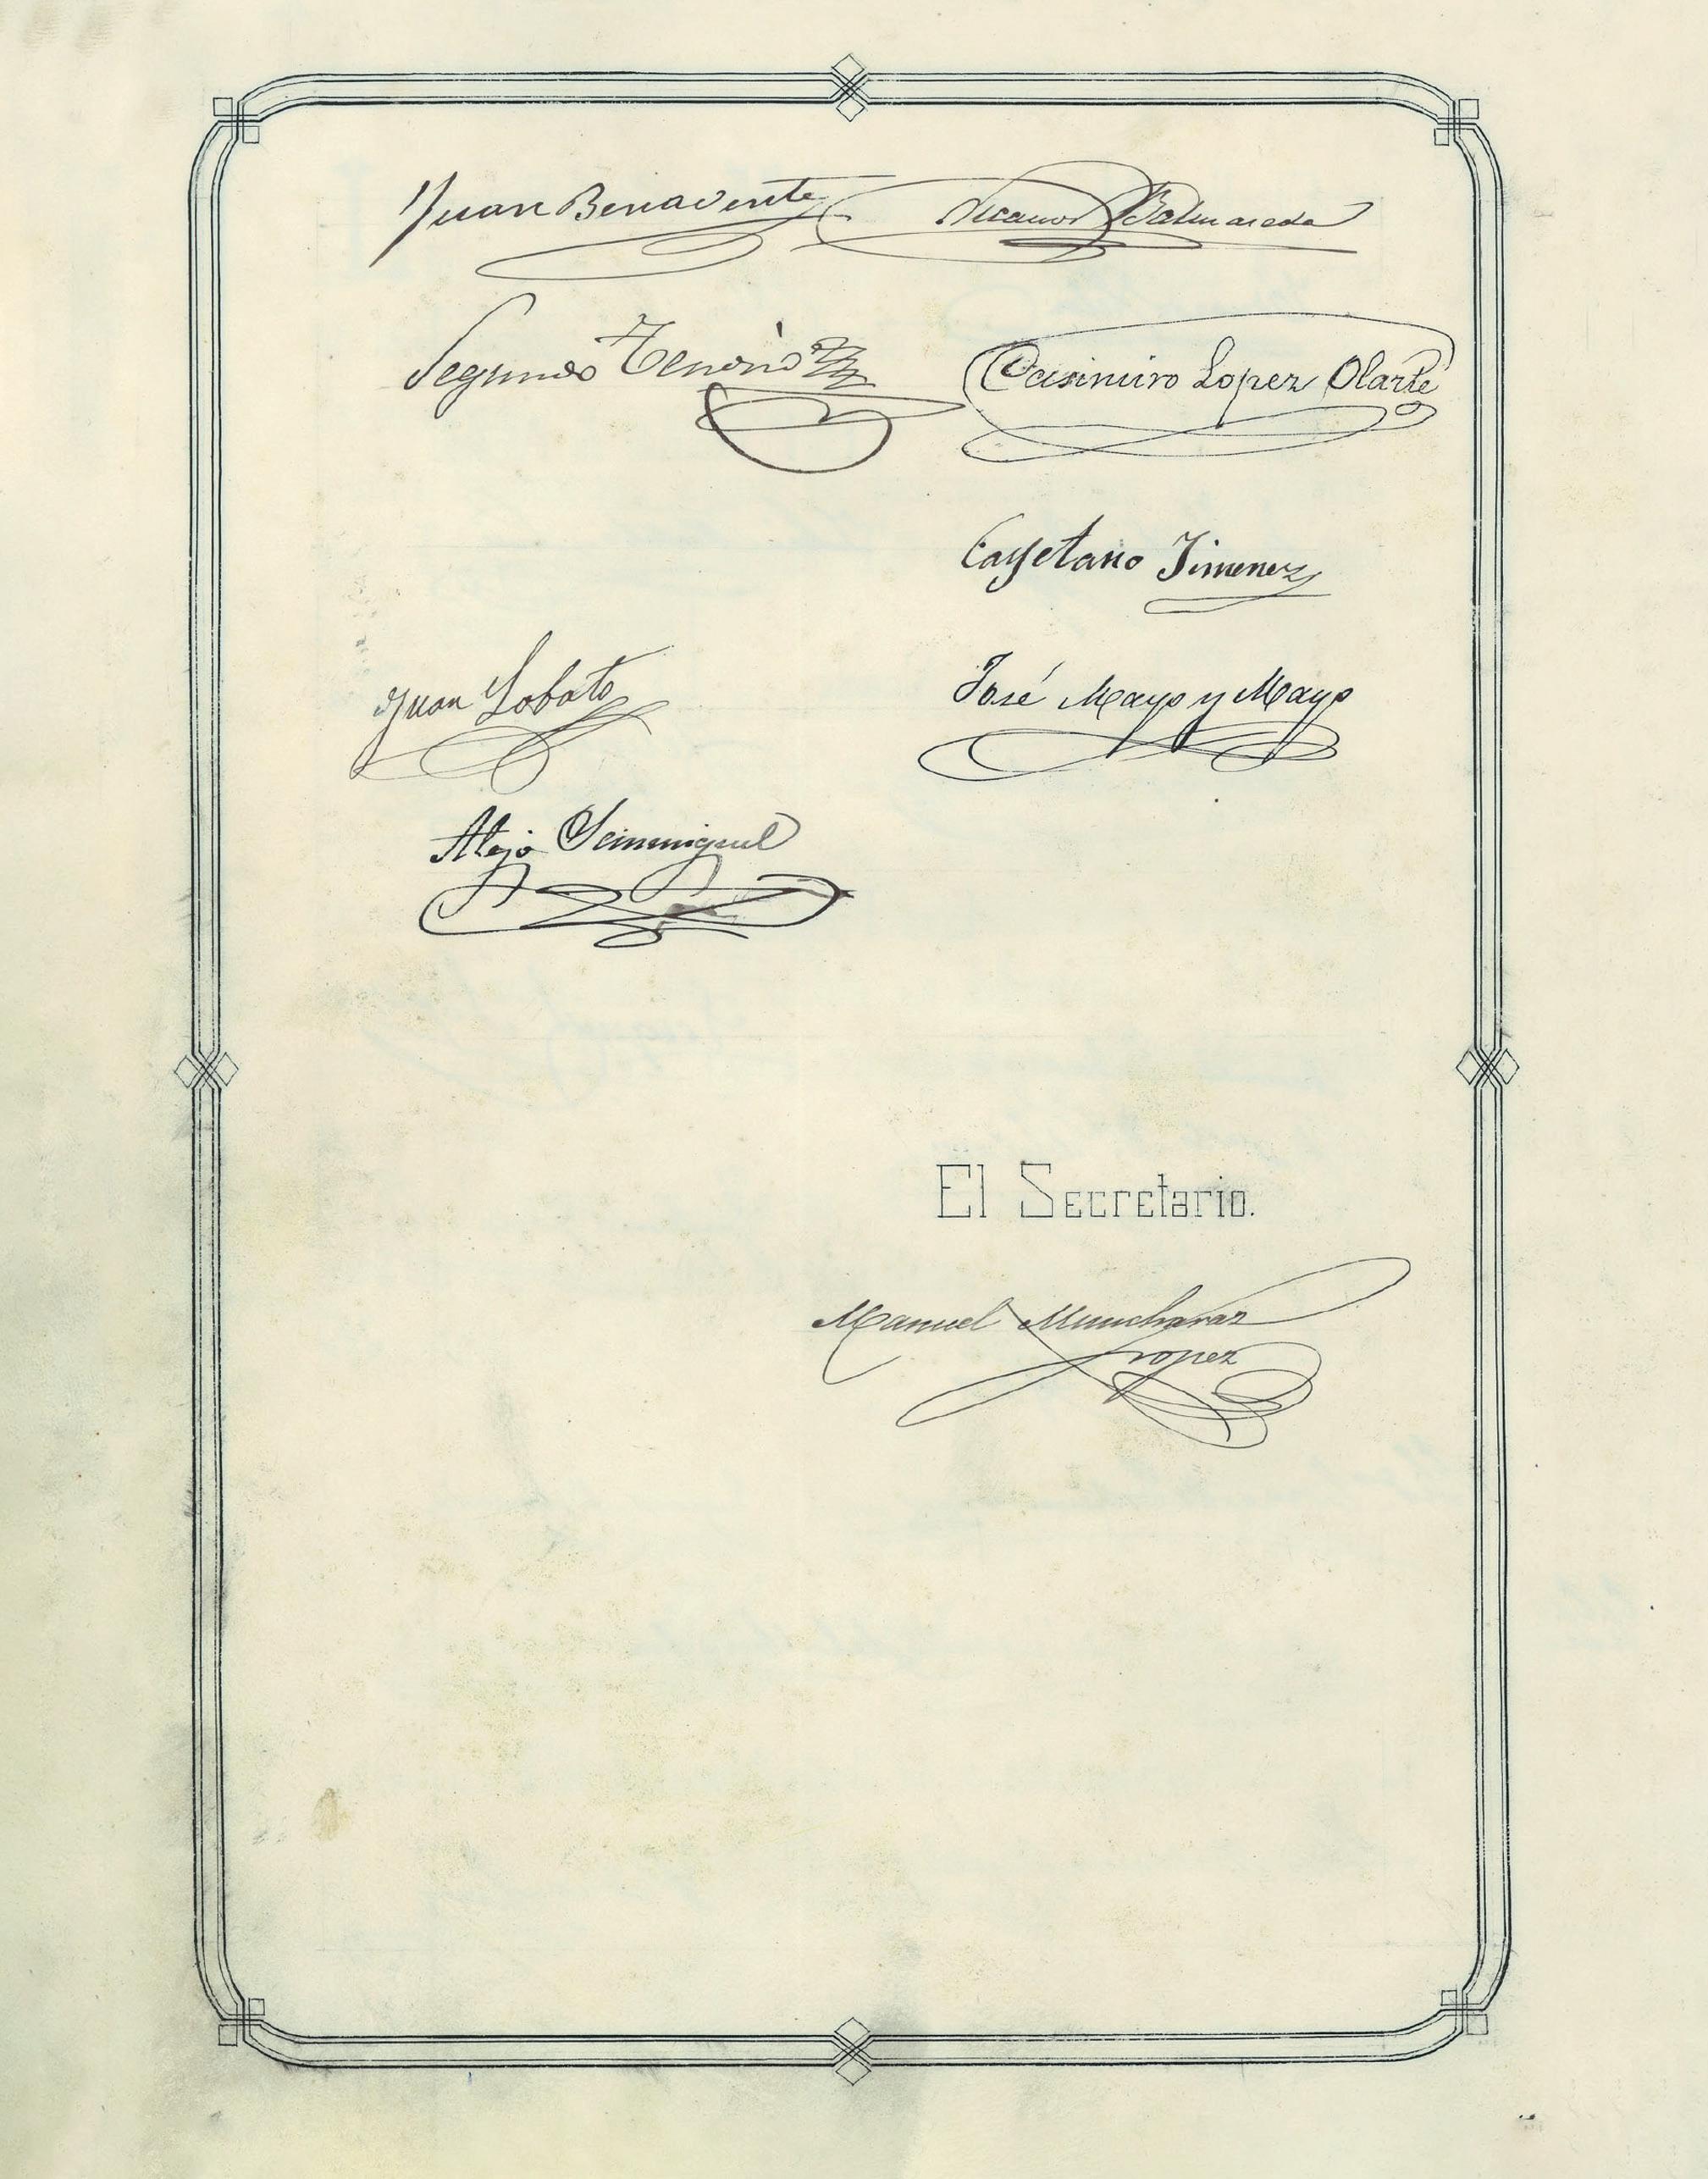 Juan Benavente Nicanor Balmaseda
Segundo Tenorio Casimiro Lopez Olarte
Cayetano Jimenez
Juan Lobato José Mayo y Mayo
Alejo Sanmiguel
El Secretario.
Manuel Muncharaz
Lopez